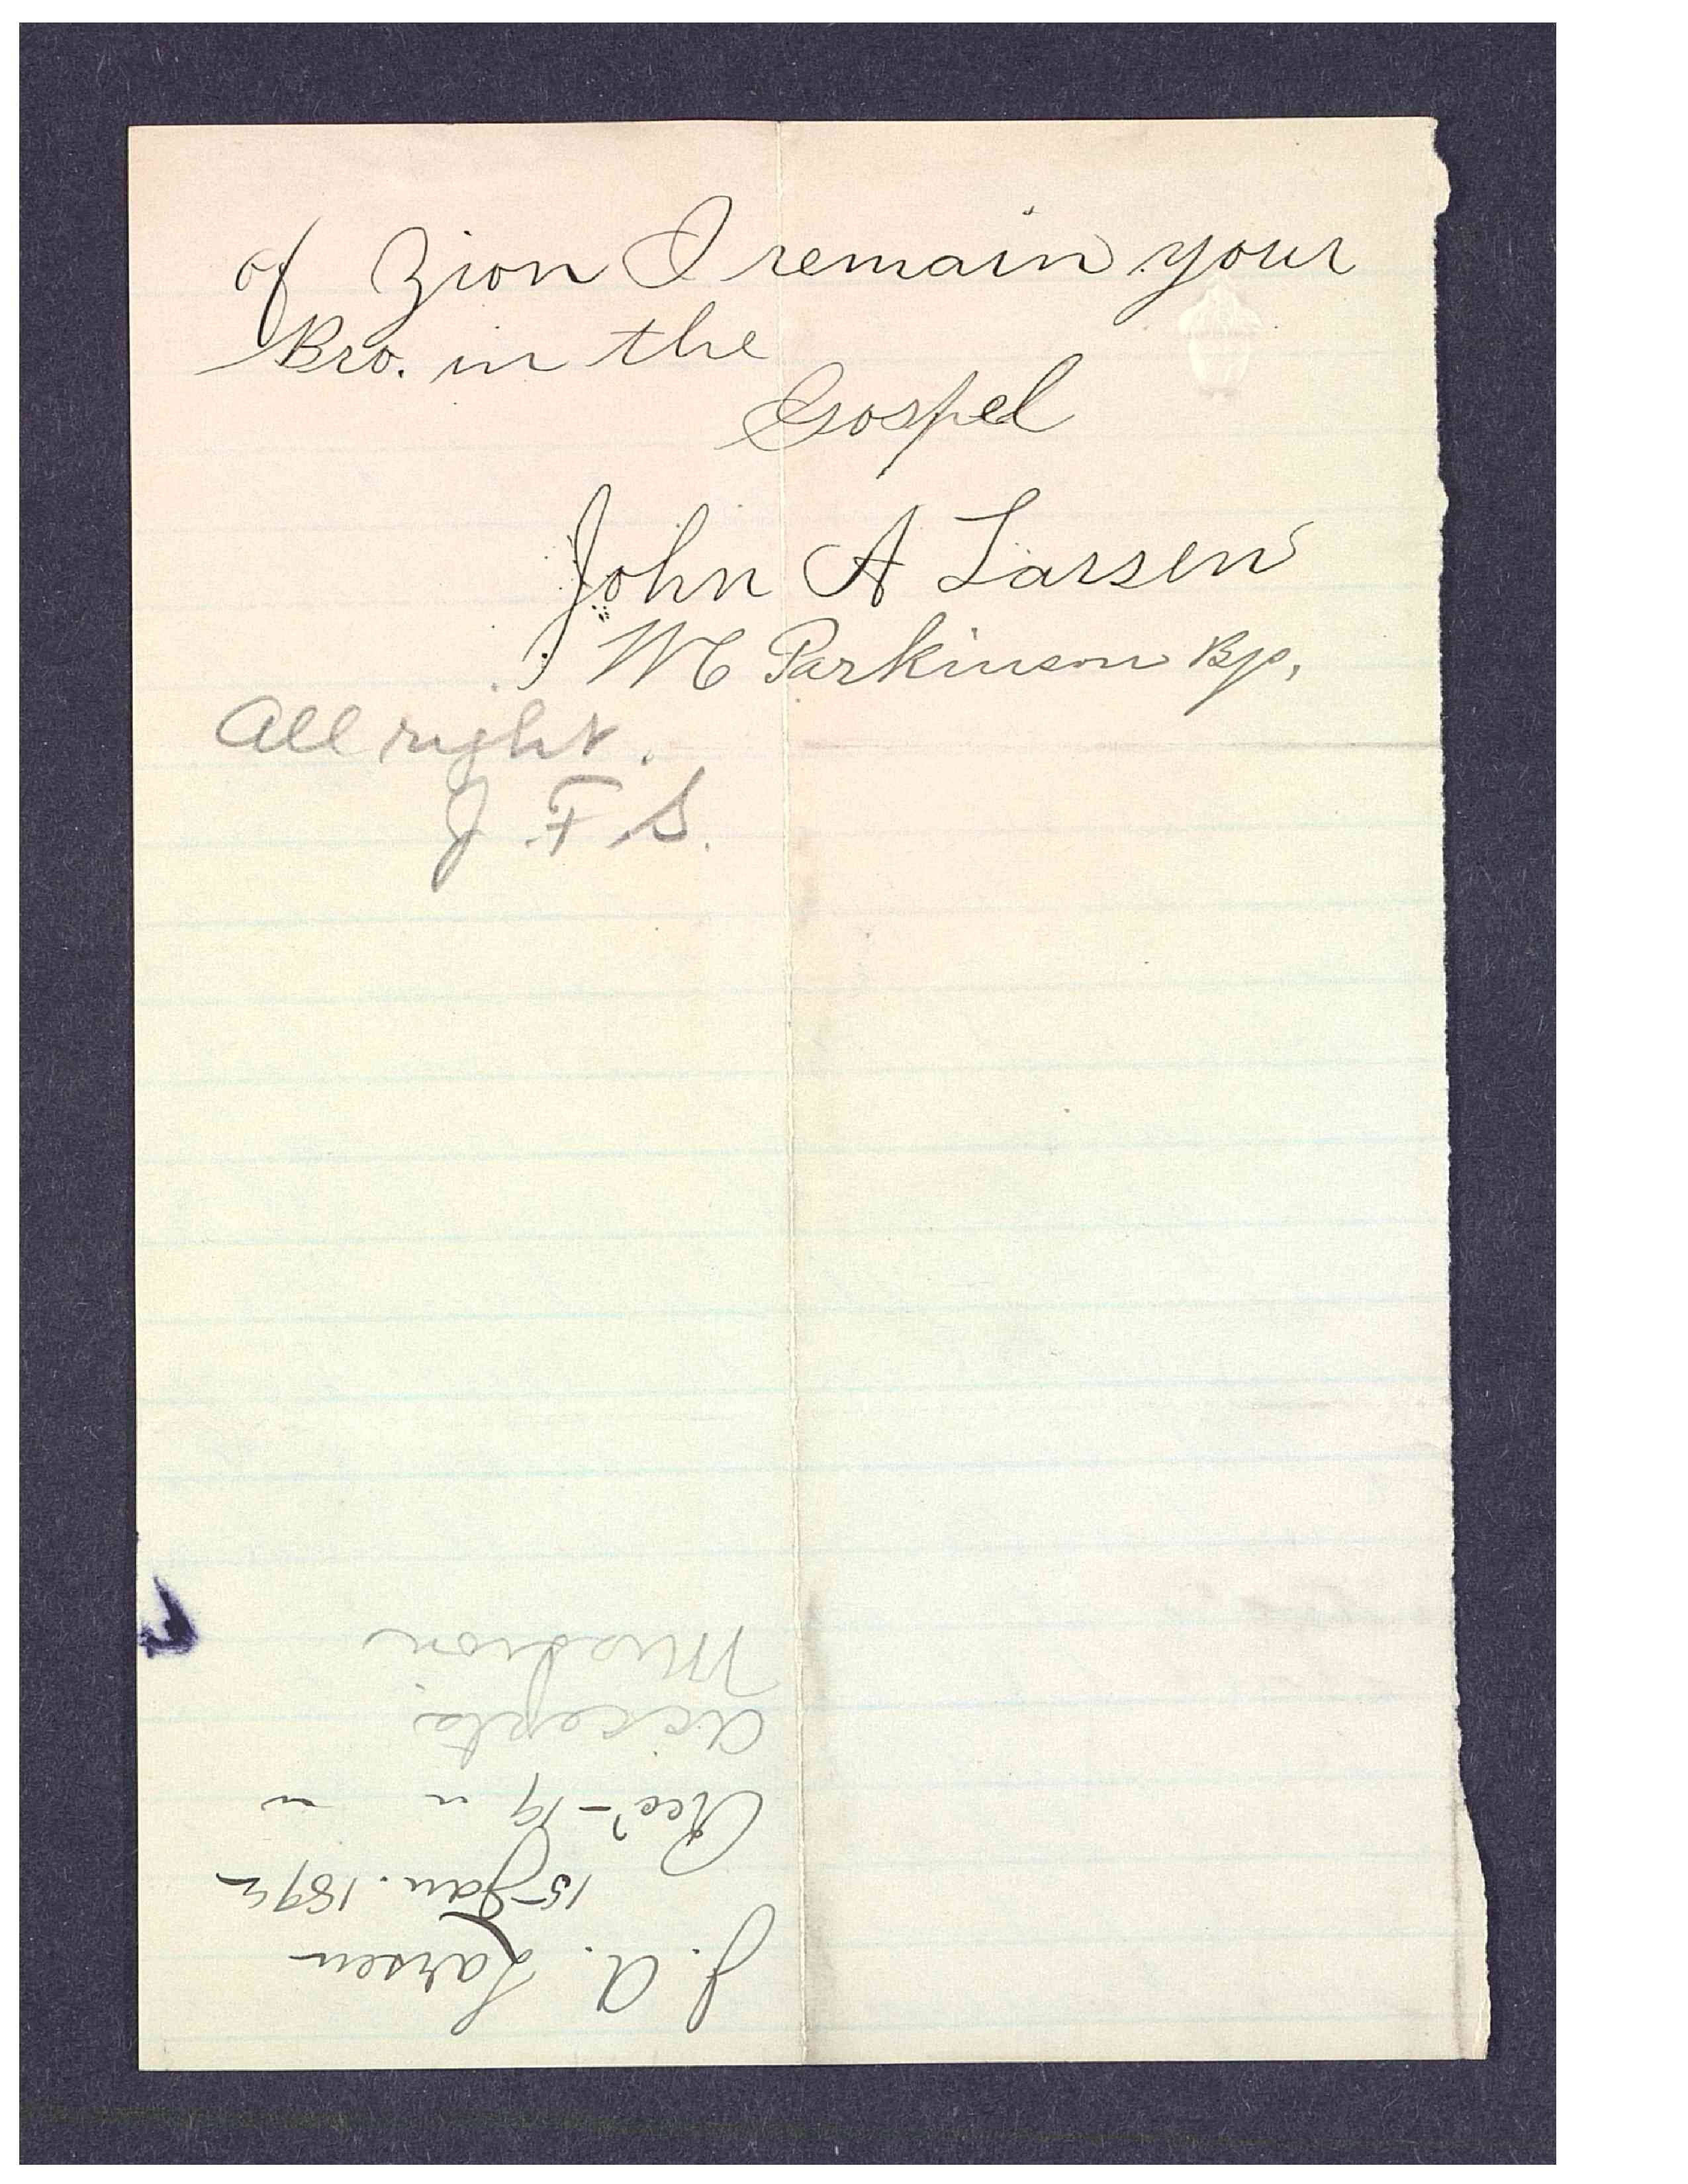 of Zion I remain your
Bro. in the
Gospel
John A Larsen
Parkinson Bp.
All right.
J. F. S.
J. A. Larsen
15 Jan. 189
Recd - 19 " "
Accepts
Mission